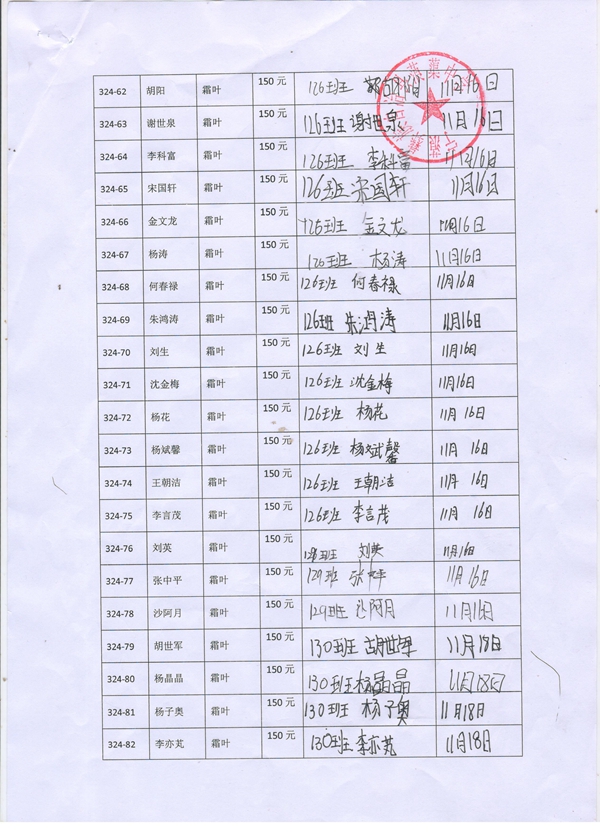 324-62 胡阳 霜叶 150元 126班 胡阳 11月16日
324-63 谢世泉 霜叶 150元 126班 谢世泉 11月16日
324-64 李科富 霜叶 150元 126班 李科富 11月16日
324-65 宋国轩 霜叶 150元 126班 宋国轩 11月16日
324-66 金文龙 霜叶 150元 126班 金文龙 11月16日
324-67 杨涛 霜叶 150元 126班 杨涛 11月16日
324-68 何春禄 霜叶 150元 126班 何春禄 11月16日
324-69 朱鸿涛 霜叶 150元 126班 朱鸿涛 11月16日
324-70 刘生 霜叶 150元 126班 刘生 11月16日
324-71 沈金梅 霜叶 150元 126班 沈金梅 11月16日
324-72 杨花 霜叶 150元 126班 杨花 11月16日
324-73 杨斌馨 霜叶 150元 126班 杨斌馨 11月16日
324-74 王朝洁 霜叶 150元 126班 王朝洁 11月16日
324-75 李言茂 霜叶 150元 126班 李言茂 11月16日
324-76 刘英 霜叶 150元 128班 刘英 11月16日
324-77 张中平 霜叶 150元 129班 张中平 11月16日
324-78 沙阿月 霜叶 150元 129班 沙阿月 11月16日
324-79 胡世军 霜叶 150元 130班 胡世军 11月18日
324-80 杨晶晶 霜叶 150元 130班 杨晶晶 11月18日
324-81 杨子奥 霜叶 150元 130班 杨子奥 11月18日
324-82 李亦芃 霜叶 150元 130班 李亦芃 11月18日